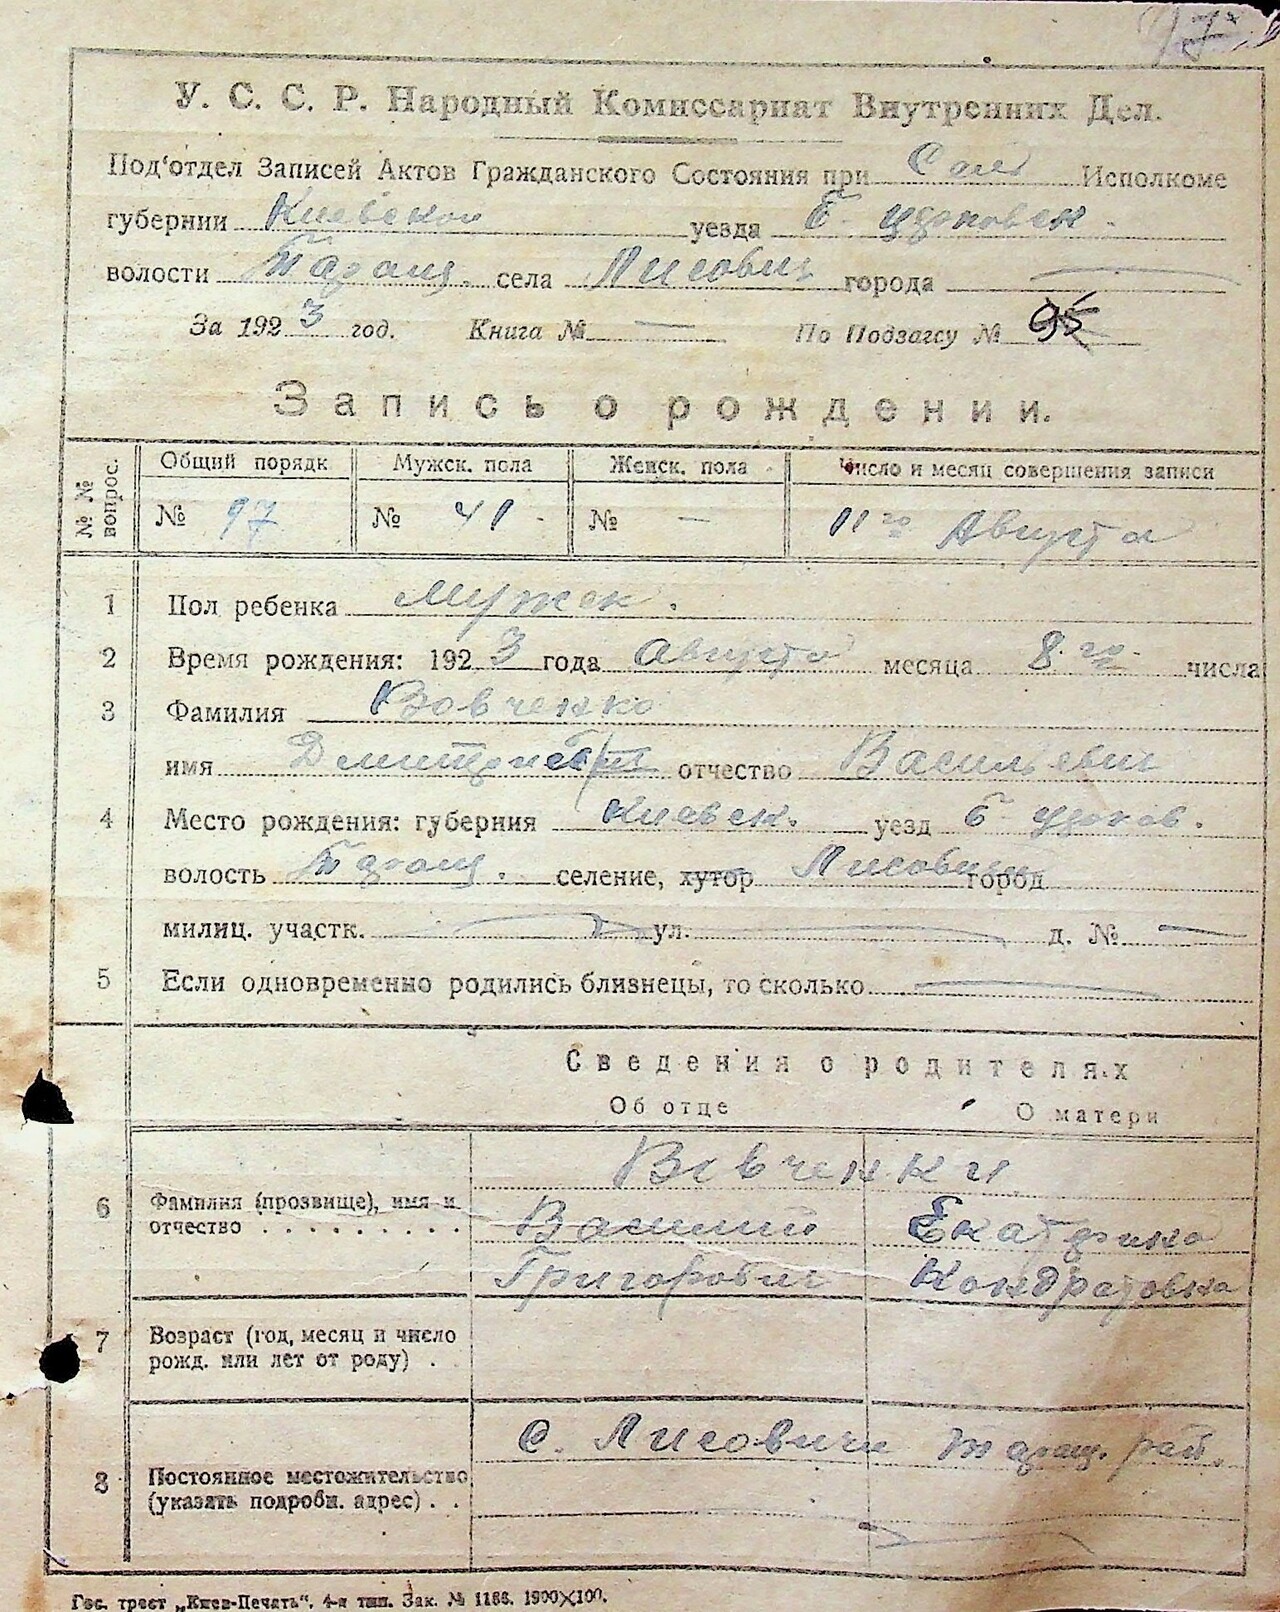 97
У. С. С. Р. Народный Комиссариат Внутренних Дел.
Под‘отдел Записей Актов Гражданского Состояния при Исполкоме
губернии Киевской уезда Б-Церковск.
волости Таращ. села Лисовичи города —
За 1923 год. Книга № — По Подзагсу № 95
Запись о рождении.
№ № вопрос. Общий порядк Мужск. пола Женск. пола Число и месяц совершения записи
№ 97 № 41 № — 11го Августа
1 Пол ребенка Мужск.
2 Время рождения: 1923 года Августа месяца 8го числа
3 Фамилия Вовченко
имя Дмитрий отчество Васильевич
4 Место рождения: губерния Киевск. уезд Б-Церков.
волость Таращ. селение, хутор Лисовичи город
милиц. участк. — ул. — д. № —
5 Если одновременно родились близнецы, то сколько —
Сведения о родителях
Об отце О матери
Вовченки
6 Фамилия (прозвище), имя и Василий Екатерина
отчество . . . . . . . . . Григорович Кондратовна
7 Возраст (год, месяц и число
рожд. или лет от роду) .
С. Лисовичи Таращ. рай.
8 Постоянное местожительство
(указать подробн. адрес) . .
Гос. трест „Киев-Печать“. 4-я тип. Зак. № 1186. 1900×100.